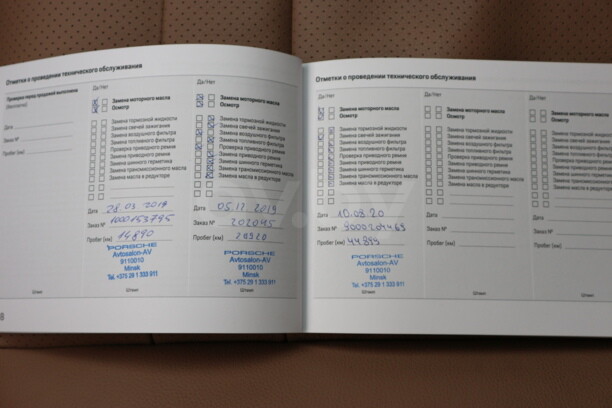 Отметки о проведении технического обслуживания
Проверки перед продажей выполнена
Дата
Заказ №
Пробег (км)
Да/Нет
Замена моторного масла
Осмотр
Замена тормозной жидкости
Замена свечей зажигания
Замена воздушного фильтра
Замена топливного фильтра
Проверка приводного ремня
Замена приводного ремня
Замена шинного герметика
Замена трансмиссионного масла
Замена масла в редукторе
Дата 28.03.2019
Заказ № 1000153795
Пробег (км) 14890
PORSCHE
Avtosalon-AV
9110010
Minsk
Tel. +375 29 1 333 911
Штамп
Да/Нет
Замена моторного масла
Осмотр
Замена тормозной жидкости
Замена свечей зажигания
Замена воздушного фильтра
Замена топливного фильтра
Проверка приводного ремня
Замена приводного ремня
Замена шинного герметика
Замена трансмиссионного масла
Замена масла в редукторе
Дата 05.12.2019
Заказ № 202045
Пробег (км)
PORSCHE
Avtosalon-AV
9110010
Minsk
Tel. +375 29 1 333 911
Штамп
Отметки о проведении технического обслуживания
Да/Нет
Замена моторного масла
Осмотр
Замена тормозной жидкости
Замена свечей зажигания
Замена воздушного фильтра
Замена топливного фильтра
Проверка приводного ремня
Замена приводного ремня
Замена шинного герметика
Замена трансмиссионного масла
Замена масла в редукторе
Дата 10.08.20
Заказ №
Пробег (км) 44893
PORSCHE
Avtosalon-AV
9110010
Minsk
Tel. +375 29 1 333 911
Штамп
Да/Нет
Замена моторного масла
Осмотр
Замена тормозной жидкости
Замена свечей зажигания
Замена воздушного фильтра
Замена топливного фильтра
Проверка приводного ремня
Замена приводного ремня
Замена шинного герметика
Замена трансмиссионного масла
Замена масла в редукторе
Дата
Заказ №
Пробег (км)
Штамп
Да/Нет
Замена моторного масла
Осмотр
Замена тормозной жидкости
Замена свечей зажигания
Замена воздушного фильтра
Замена топливного фильтра
Проверка приводного ремня
Замена приводного ремня
Замена шинного герметика
Замена трансмиссионного масла
Замена масла в редукторе
Дата
Заказ №
Пробег (км)
Штамп